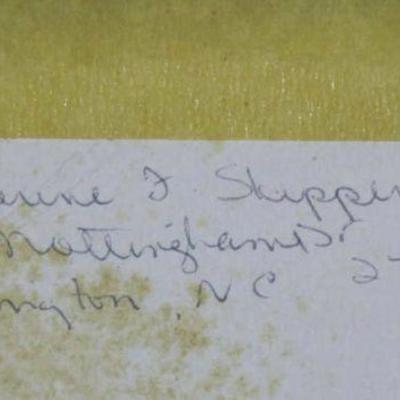 erine F. Skipper
Nottingham Dr
ngton, NC 2